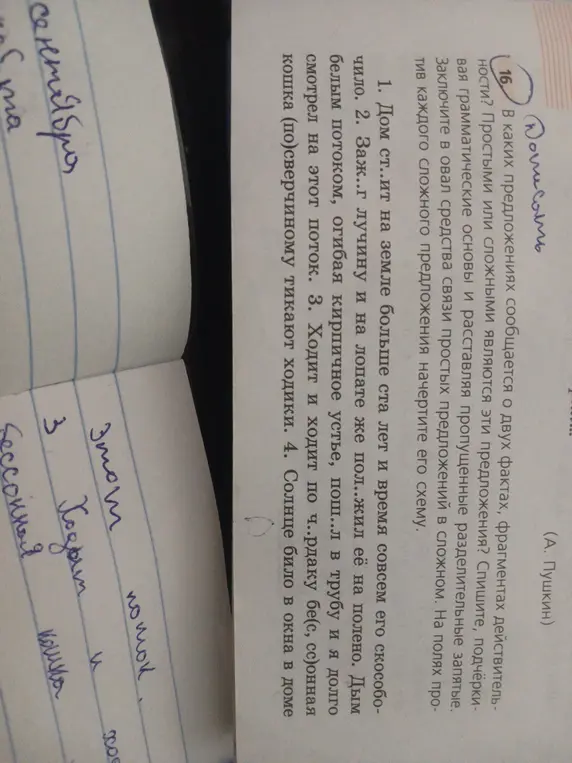 (А. Пушкин)
Дописать
16 В каких предложениях сообщается о двух фактах, фрагментах действитель-
ности? Простыми или сложными являются эти предложения? Спишите, подчёрки-
вая грамматические основы и расставляя пропущенные разделительные запятые.
Заключите в овал средства связи простых предложений в сложном. На полях про-
тив каждого сложного предложения начертите его схему.
1. Дом ст..ит на земле больше ста лет и время совсем его скособо-
чило. 2. Заж..г лучину и на лопате же пол..жил её на полено. Дым
белым потоком, огибая кирпичное устье, пош..л в трубу и я долго
смотрел на этот поток. 3. Ходит и ходит по ч..рдаку бе(с, сс)онная
кошка (по)сверчиному тикают ходики. 4. Солнце било в окна в доме
сентября
этот поток.
3 Ходит и
бессонная кошка